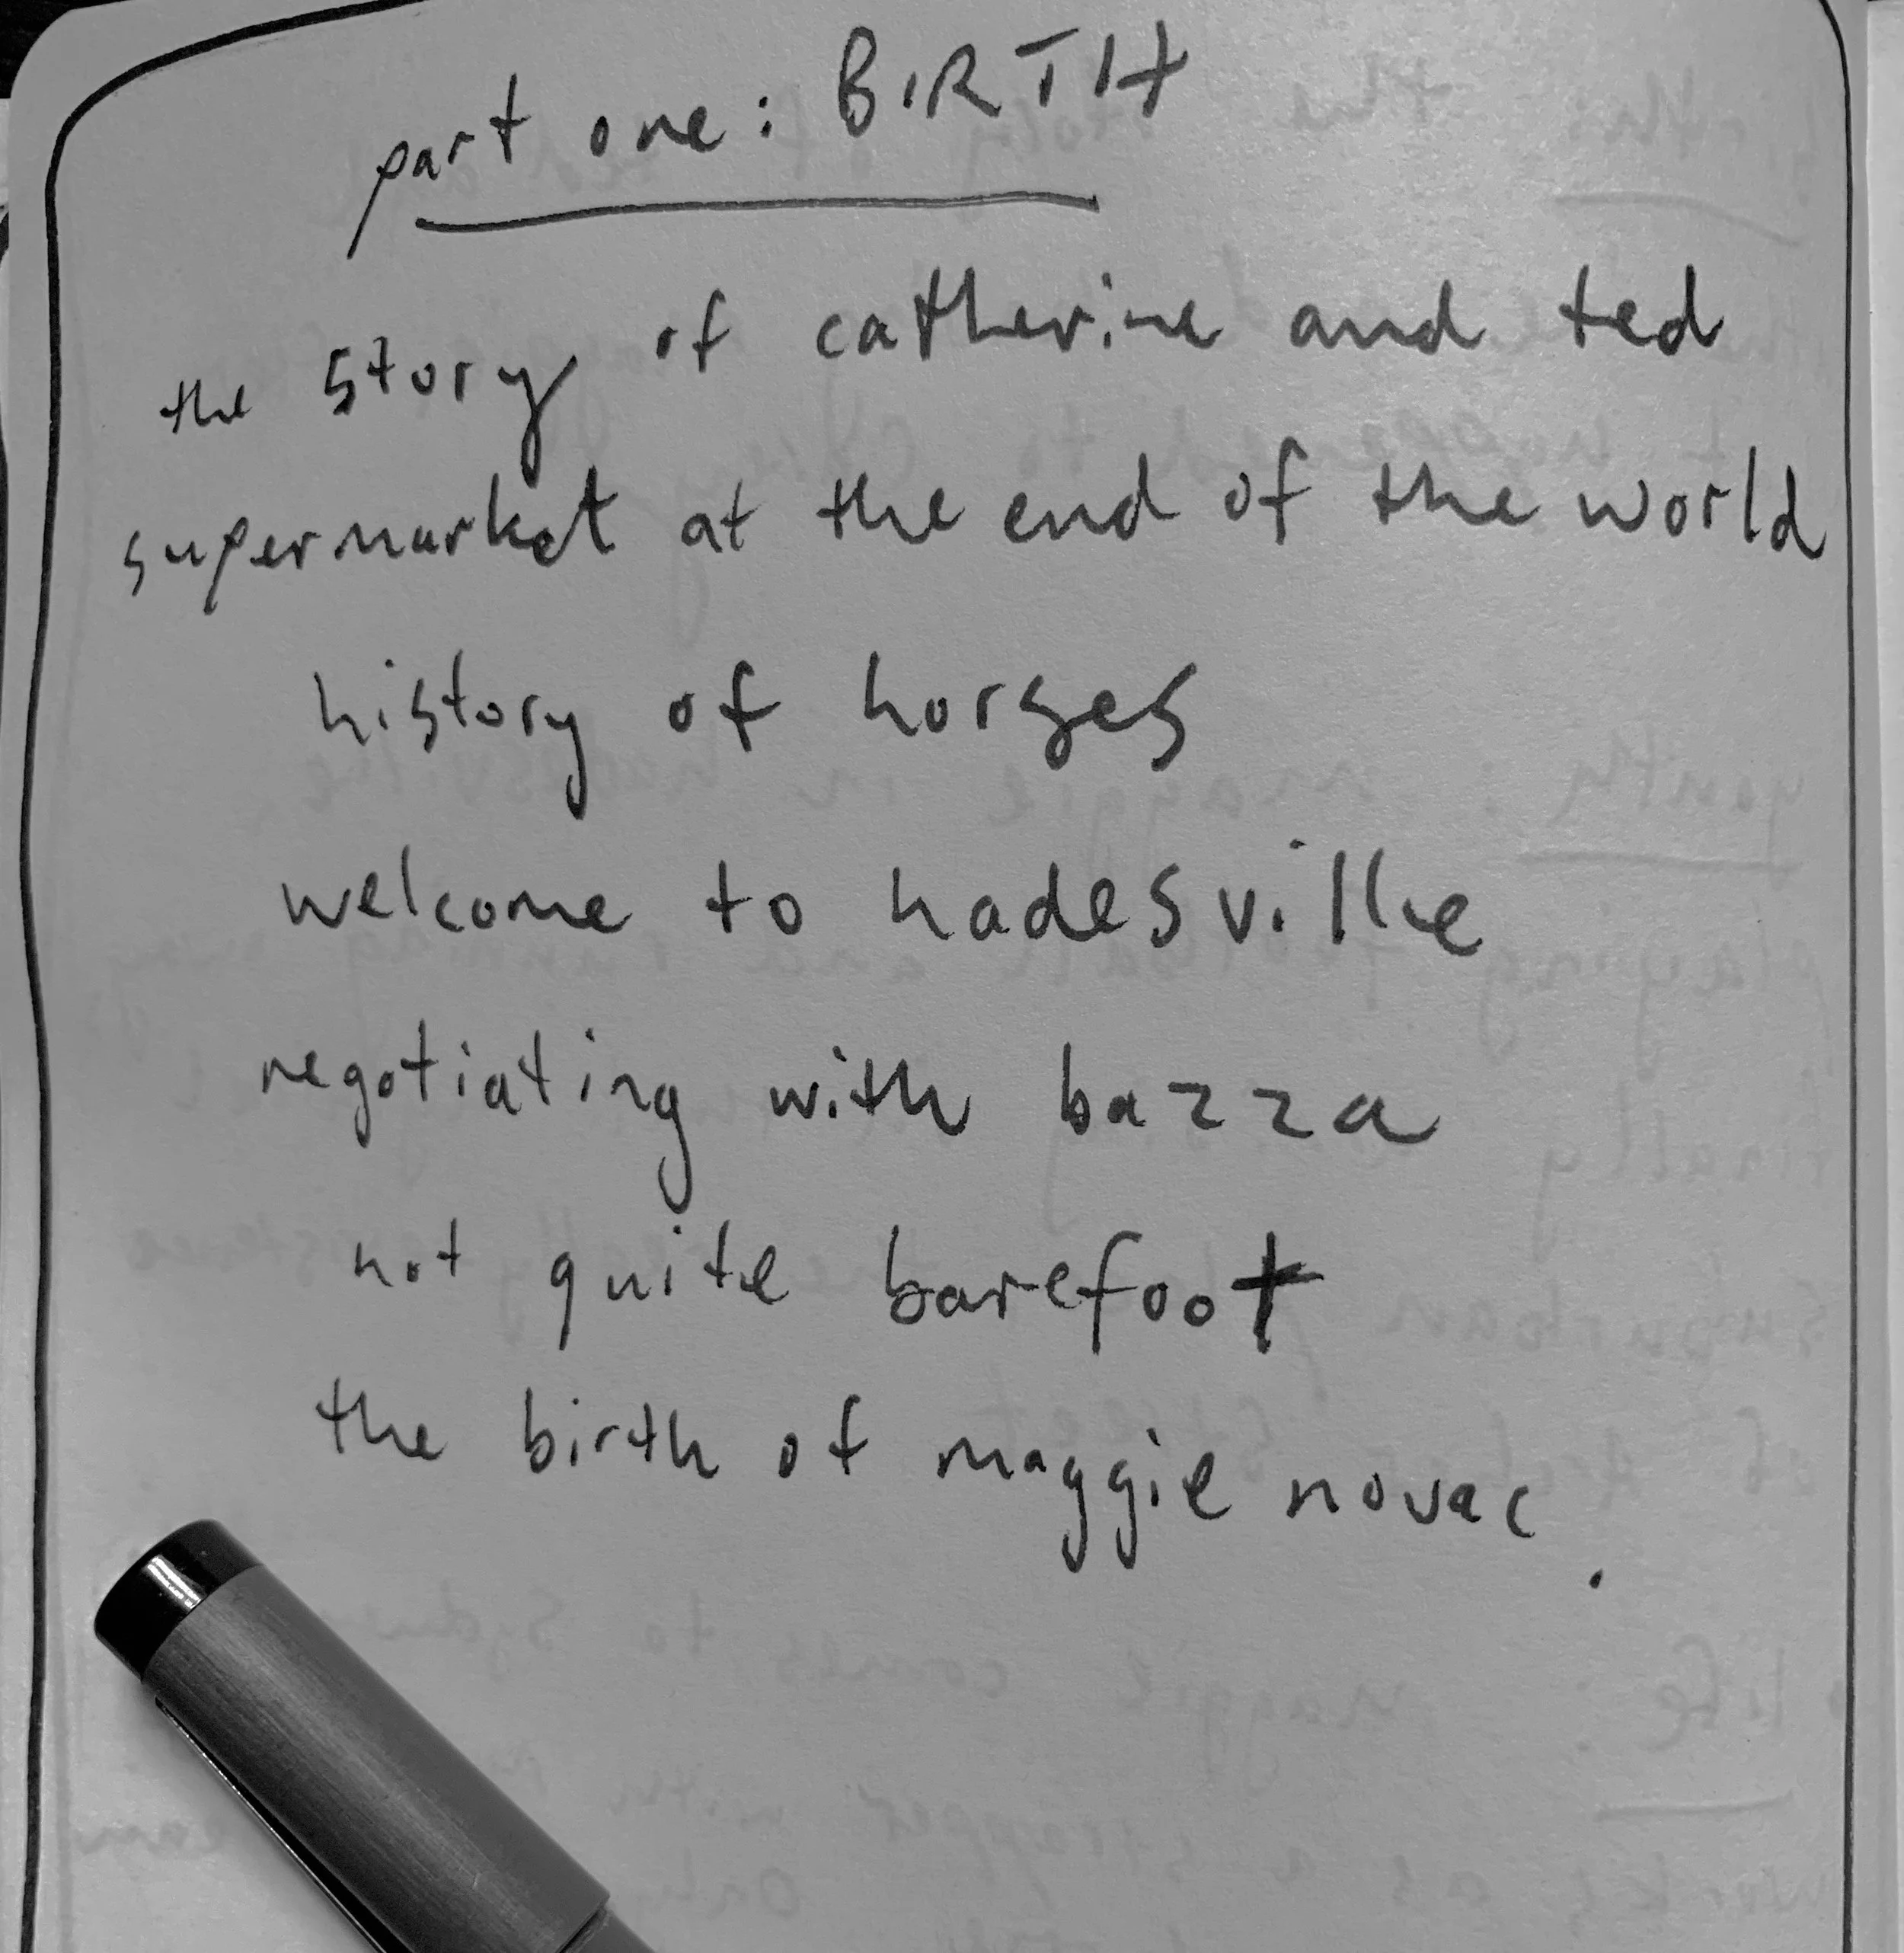 part one: BIRTH
the story of catherine and ted
supermarket at the end of the world
history of horses
welcome to hadesville
negotiating with bazza
not quite barefoot
the birth of maggie novac.